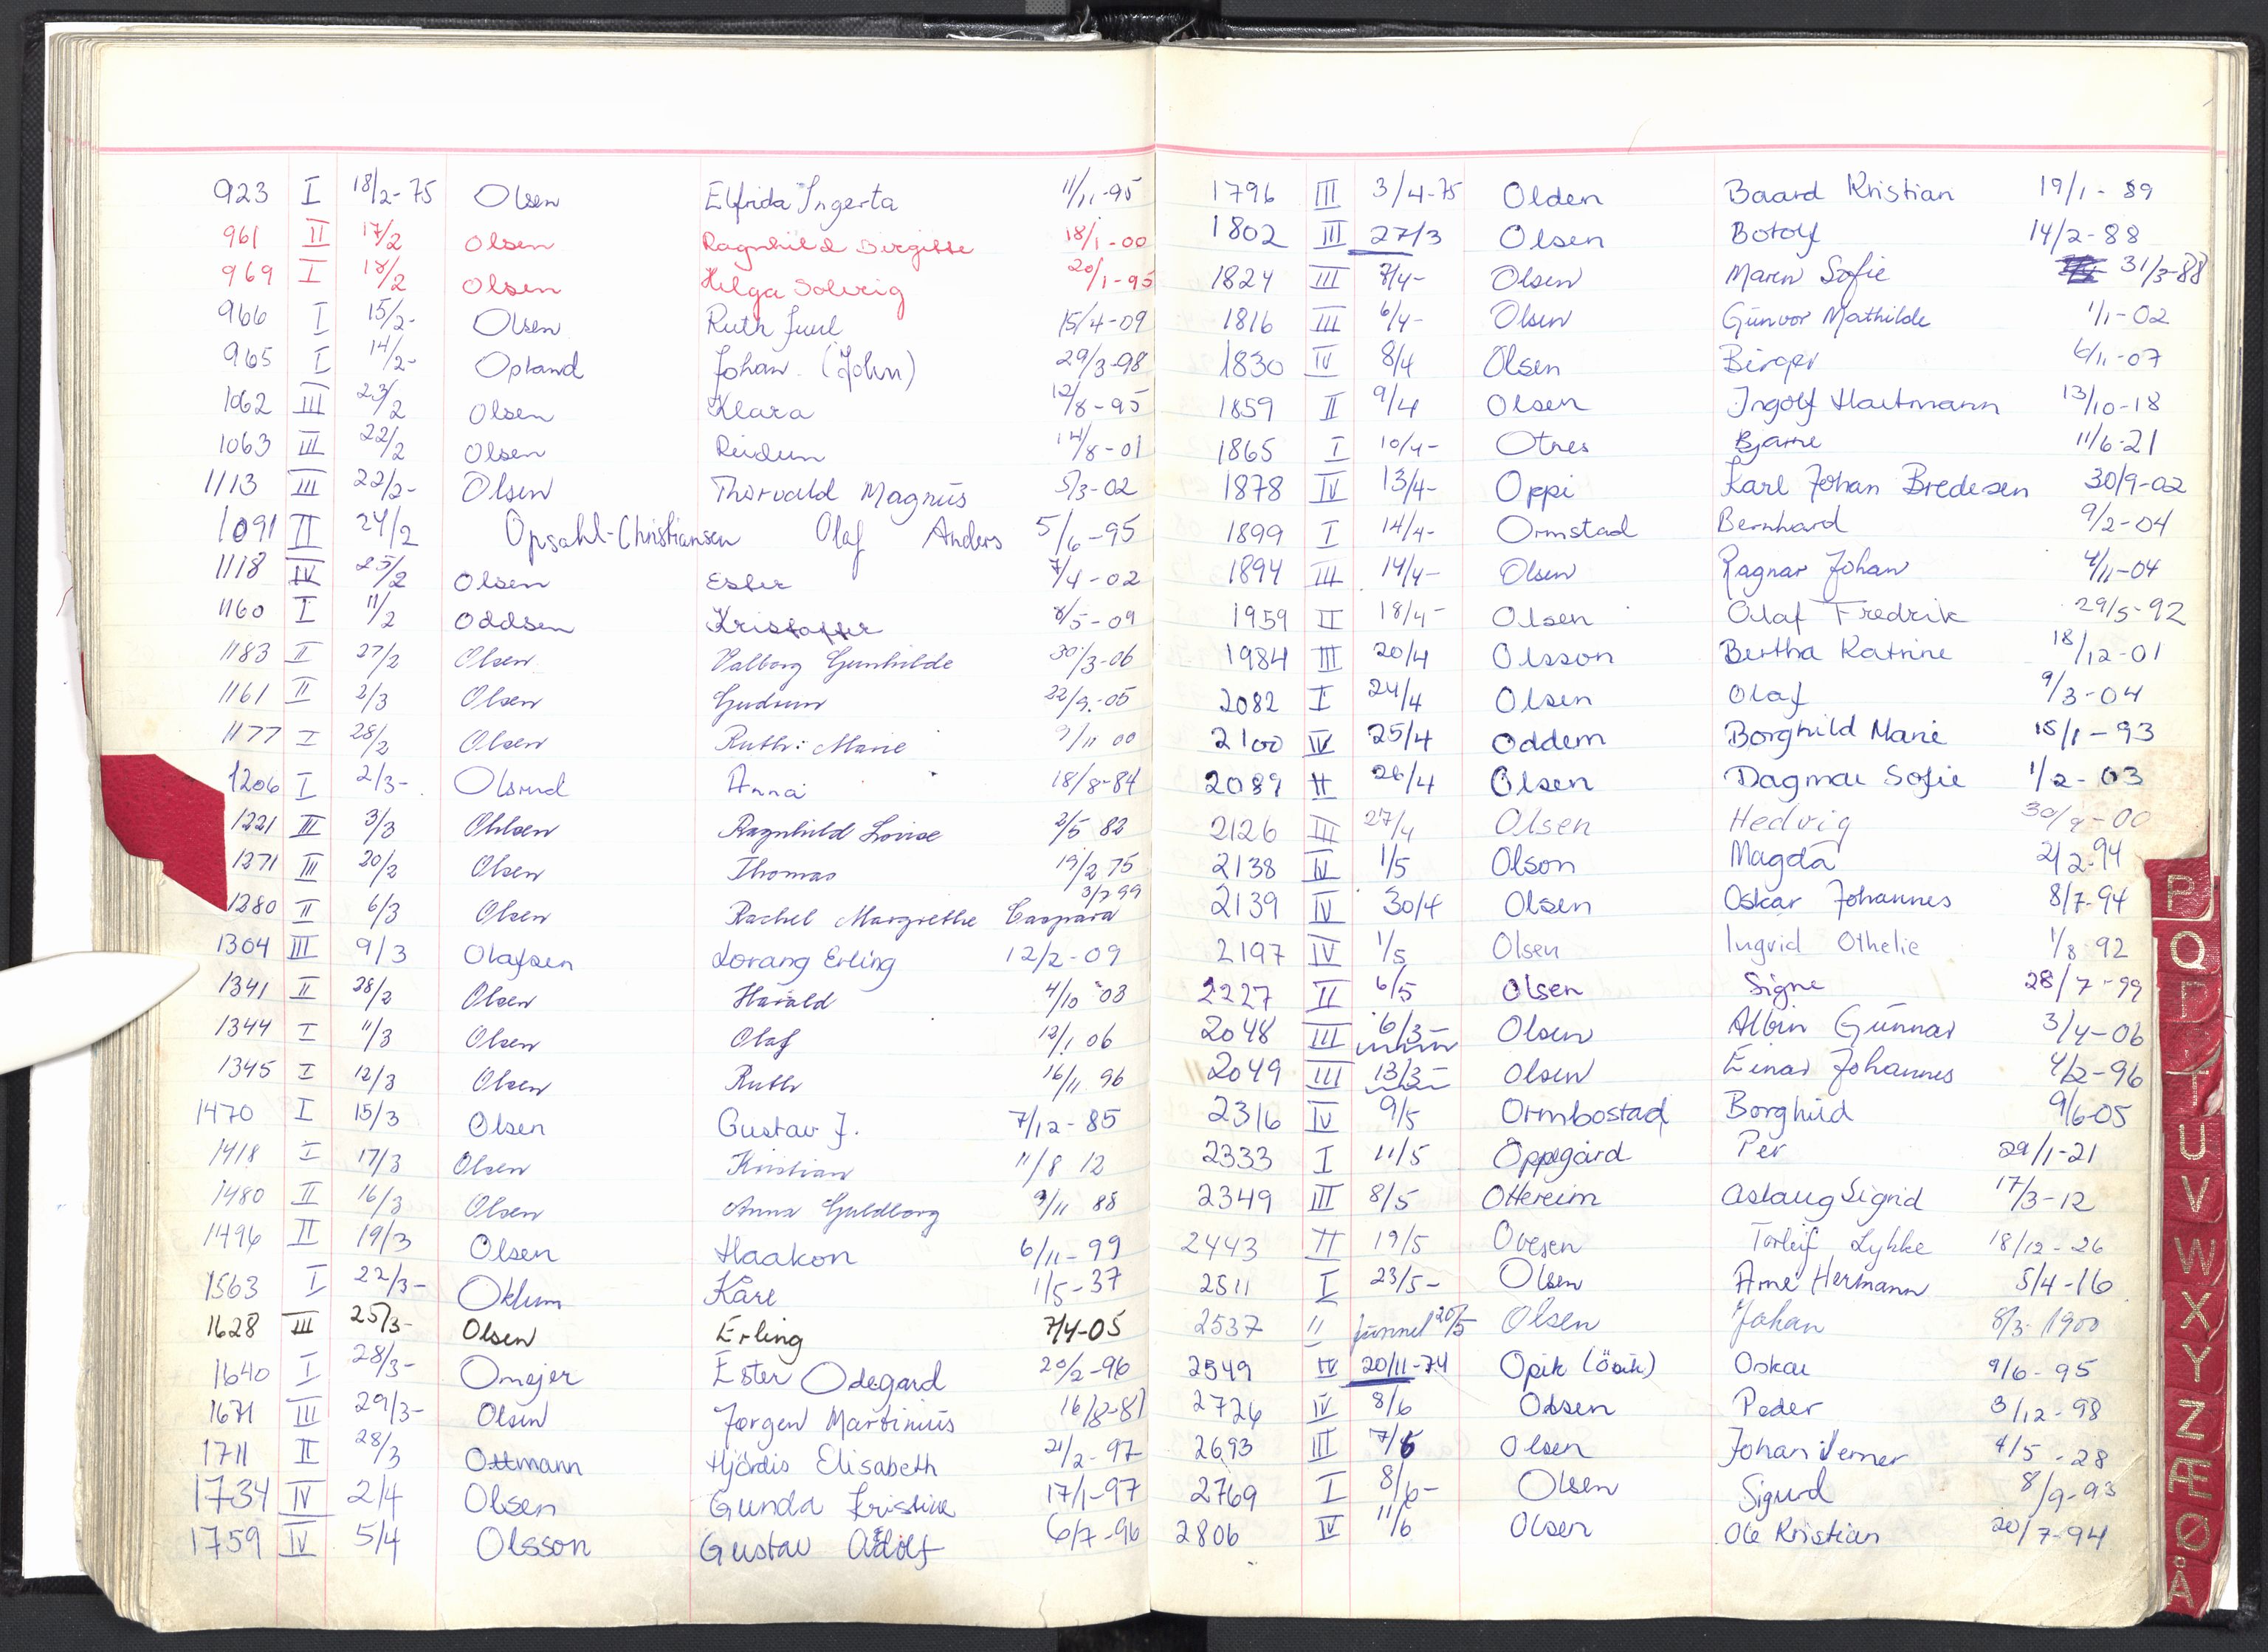 923 I 18/2-75 Olsen Elfrida Ingerta 11/11-95
961 II 17/2 Olsen Ragnhild Birgitte 18/1-00
969 I 18/2 Olsen Helga Solveig 20/1-95
966 I 15/2- Olsen Ruth Juul 15/4-09
965 I 14/2- Opland Johan (John) 29/3-98
1062 III 23/2 Olsen Klara 12/8-95
1063 III 22/2 Olsen Reidun 14/8-01
1113 III 22/2- Olsen Thorvald Magnus 5/3-02
1091 II 24/2 Opsahl-Christiansen Olaf Anders 5/6-95
1118 IV 25/2 Olsen Ester 7/4-02
1160 I 11/2 Oddsen Kristoffer 8/5-09
1183 II 27/2 Olsen Valborg Gunhilde 30/3-06
1161 II 2/3 Olsen Gudrun 22/9-05
1177 I 28/2 Olsen Ruth Marie 9/11 00
1206 I 2/3- Olsrud Anna 18/8-84
1221 III 3/3 Ohlsen Ragnhild Lovise 2/5 82
1271 III 20/2 Olsen Thomas 19/2 75
1280 II 6/3 Olsen Rachel Margrethe Caspara 3/7 99
1304 III 9/3 Olafsen Lorang Erling 12/2-09
1341 II 28/2 Olsen Harald 4/10 03
1344 I 11/3 Olsen Olaf 12/1 06
1345 I 12/3 Olsen Ruth 16/11 96
1470 I 15/3 Olsen Gustav J. 7/12-85
1418 I 17/3 Olsen Kristian 11/8 12
1480 II 16/3 Olsen Anna Guldborg 9/11 88
1496 II 19/3 Olsen Haakon 6/11-99
1563 I 22/3- Oklum Kåre 1/5-37
1628 III 25/3- Olsen Erling 7/4-05
1640 I 28/3- Omejer Ester Odegard 20/2-96
1671 III 29/3- Olsen Jørgen Martinius 16/8-81
1711 II 28/3 Ottmann Hjördis Elisabeth 21/2-97
1734 IV 2/4 Olsen Gunda Kristine 17/1-97
1759 IV 5/4 Olsson Gustav Adolf 6/7-96
1796 III 3/4-75 Olden Baard Kristian 19/1-89
1802 III 27/3 Olsen Botolf 14/2-88
1824 III 7/4- Olsen Maren Sofie 31/3-88
1816 III 6/4- Olsen Gunvor Mathilde 1/1-02
1830 IV 8/4 Olsen Birger 6/11-07
1859 II 9/4 Olsen Ingolf Hartmann 13/10-18
1865 I 10/4- Otnes Bjarne 11/6-21
1878 IV 13/4- Oppi Karl Johan Bredesen 30/9-02
1899 I 14/4- Ormstad Bernhard 9/2-04
1894 III 14/4- Olsen Ragnar Johan 4/11-04
1959 II 18/4- Olsen Olaf Fredrik 29/5-92
1984 III 20/4 Olsson Bertha Katrine 18/12-01
2082 I 24/4 Olsen Olaf 9/3-04
2100 IV 25/4 Oddem Borghild Marie 15/1-93
2089 II 26/4 Olsen Dagmar Sofie 1/2-03
2126 III 27/4 Olsen Hedvig 30/9-00
2138 IV 1/5 Olson Magda 2/2-94
2139 IV 30/4 Olsen Oskar Johannes 8/7-94
2197 IV 1/5 Olsen Ingrid Othelie 1/8 92
2227 II 6/5 Olsen Signe 28/7-99
2048 III 6/3- Olsen Albin Gunnar 3/4-06
2049 III 13/3- Olsen Einar Johannes 4/2-96
2316 IV 9/5 Ormbostad Borghild 9/6-05
2333 I 11/5 Oppegård Per 29/1-21
2349 III 8/5 Ottereim Aslaug Sigrid 17/3-12
2443 II 19/5 Ovesen Torleif Lykke 18/12-26
2511 I 23/5- Olsen Arne Hermann 5/4-16
2537 II funnet 20/5 Olsen Johan 8/3-1900
2549 IV 20/11-74 Opik (Öpik) Oskar 9/6-95
2726 IV 8/6 Olsen Peder 3/12-98
2693 III 7/6 Olsen Johan Verner 4/5-28
2769 I 8/6- Olsen Sigurd 8/9-93
2806 IV 11/6 Olsen Ole Kristian 20/7-94
P
Q
T
U
V
W
X
Y
Z
Æ
Ø
Å